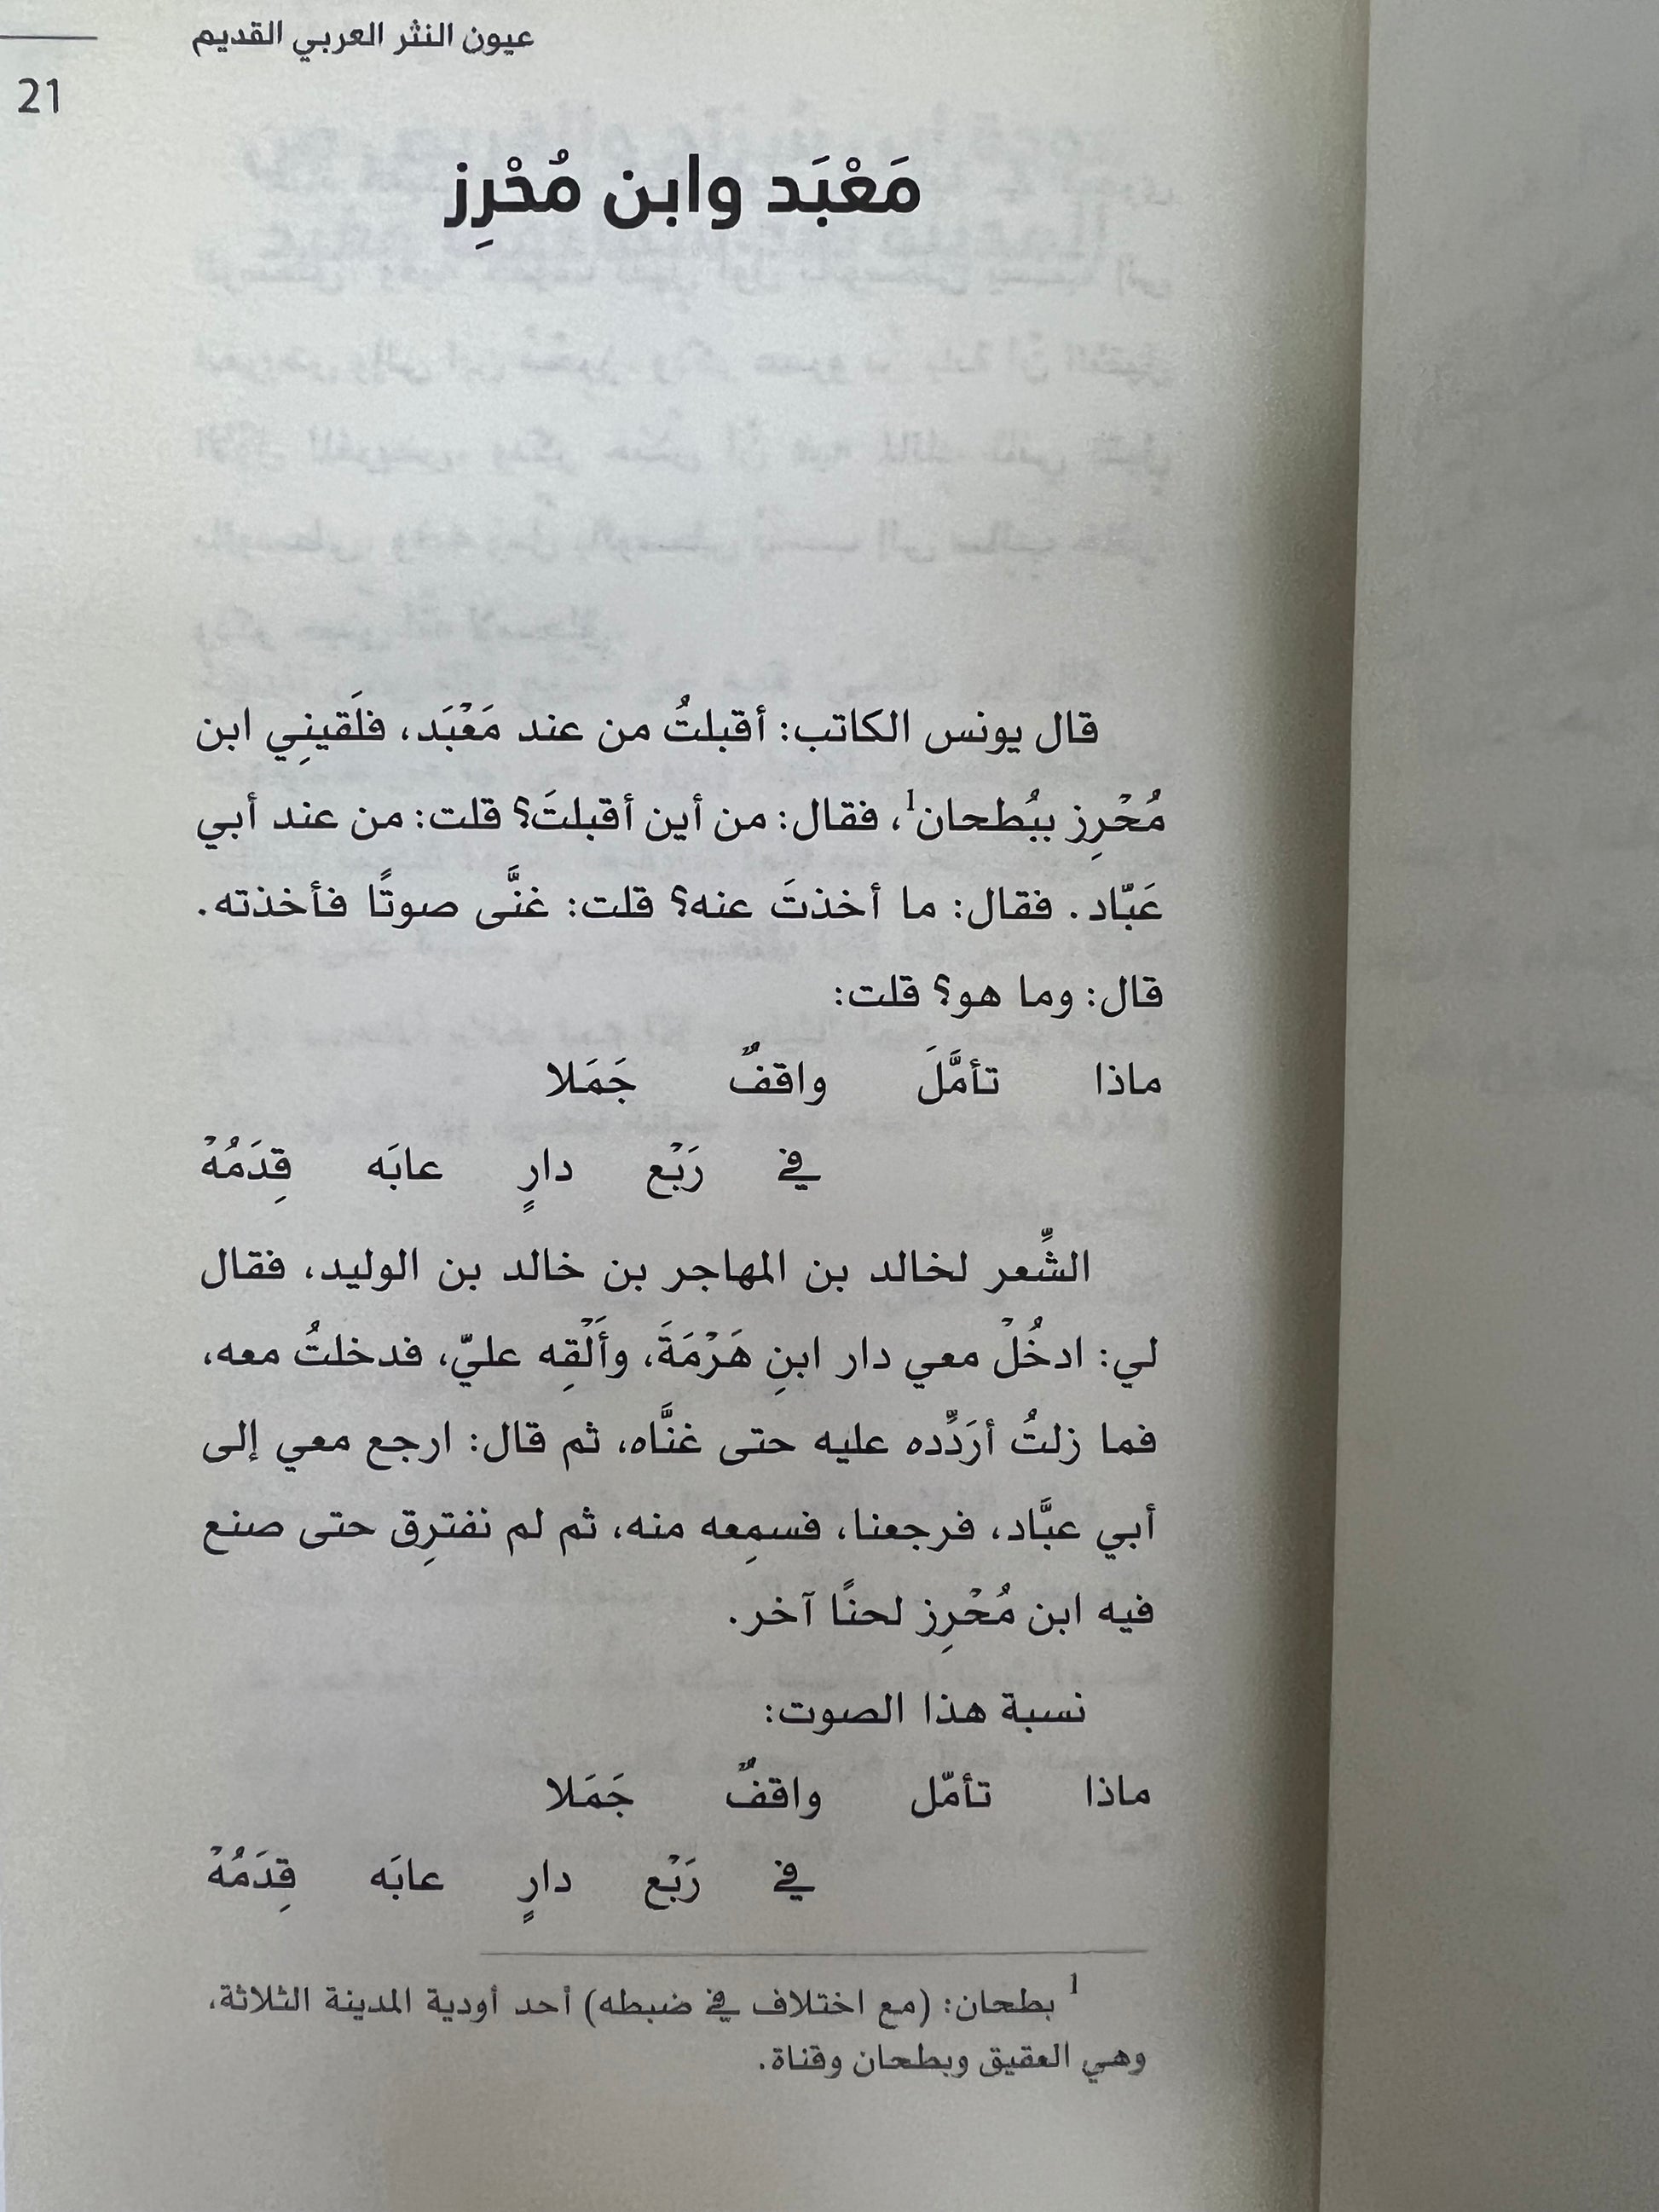 عيون النثر العربي القديم
21
مَعْبَد وابن مُحْرِز
قال يونس الكاتب: أقبلتُ من عند مَعْبَد، فلَقينِي ابن
مُحْرِز ببُطحان1، فقال: من أين أقبلتَ؟ قلت: من عند أبي
عَبّاد. فقال: ما أخذتَ عنه؟ قلت: غنَّى صوتًا فأخذته.
قال: وما هو؟ قلت:
ماذا تأمَّلَ واقفٌ جَمَلا
في رَبْع دارٍ عابَه قِدَمُهْ
الشِّعر لخالد بن المهاجر بن خالد بن الوليد، فقال
لي: ادخُلْ معي دار ابنِ هَرْمَةَ، وأَلْقِه عليّ، فدخلتُ معه،
فما زلتُ أرَدِّده عليه حتى غنَّاه، ثم قال: ارجع معي إلى
أبي عبَّاد، فرجعنا، فسمِعه منه، ثم لم نفترِق حتى صنع
فيه ابن مُحْرِز لحنًا آخر.
نسبة هذا الصوت:
ماذا تأمّل واقفٌ جَمَلا
في رَبْع دارٍ عابَه قِدَمُهْ
1 بطحان: (مع اختلاف في ضبطه) أحد أودية المدينة الثلاثة،
وهي العقيق وبطحان وقناة.